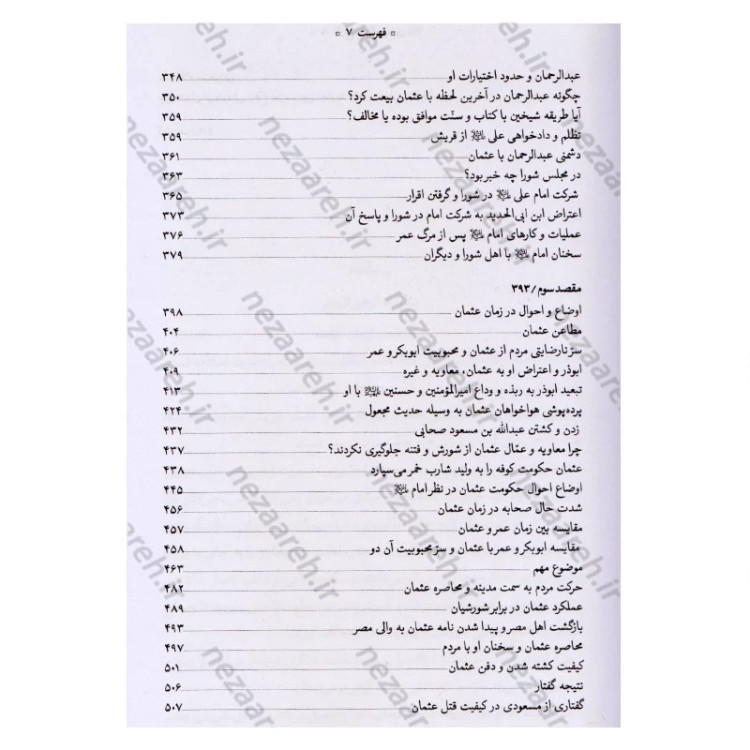 ▫ فهرست ۷ ▫
عبدالرحمان و حدود اختیارات او ۳۴۸
چگونه عبدالرحمان در آخرین لحظه با عثمان بیعت کرد؟ ۳۵۰
آیا طریقه شیخین با کتاب و سنّت موافق بوده یا مخالف؟ ۳۵۹
تظلم و دادخواهی علی ﷺ از قریش ۳۵۹
دشمنی عبدالرحمان با عثمان ۳۶۱
در مجلس شورا چه خبر بود؟ ۳۶۳
شرکت امام علی در شورا و گرفتن اقرار ۳۶۵
اعتراض ابن ابی‌الحدید به شرکت امام در شورا و پاسخ آن ۳۷۳
عملیات و کارهای امام پس از مرگ عمر ۳۷۶
سخنان امام با اهل شورا و دیگران ۳۷۹
مقصد سوم / ۳۹۳
اوضاع و احوال در زمان عثمان ۳۹۸
مطاعن عثمان ۴۰۴
سرّ نارضایتی مردم از عثمان و محبوبیت ابوبکر و عمر ۴۰۶
ابوذر و اعتراض او به عثمان، معاویه و غیره ۴۰۹
تبعید ابوذر به ربذه و وداع امیرالمؤمنین و حسنین با او ۴۱۳
پرده‌پوشی هواخواهان عثمان به وسیله حدیث مجعول ۴۲۴
زدن و کشتن عبدالله بن مسعود صحابی ۴۳۲
چرا معاویه و عمّال عثمان از شورش و فتنه جلوگیری نکردند؟ ۴۳۷
عثمان حکومت کوفه را به ولید شارب خمر می‌سپارد ۴۳۸
اوضاع احوال حکومت عثمان در نظر امام ۴۴۵
شدت حال صحابه در زمان عثمان ۴۵۶
مقایسه بین زمان عمر و عثمان ۴۵۷
مقایسه ابوبکر و عمر با عثمان و سرّ محبوبیت آن دو ۴۵۸
موضوع مهم ۴۶۳
حرکت مردم به سمت مدینه و محاصره عثمان ۴۸۲
عملکرد عثمان در برابر شورشیان ۴۸۹
بازگشت اهل مصر و پیدا شدن نامه عثمان به والی مصر ۴۹۳
محاصره عثمان و سخنان او با مردم ۴۹۷
کیفیت کشته شدن و دفن عثمان ۵۰۱
نتیجه گفتار ۵۰۶
گفتاری از مسعودی در کیفیت قتل عثمان ۵۰۷
nezaareh.ir